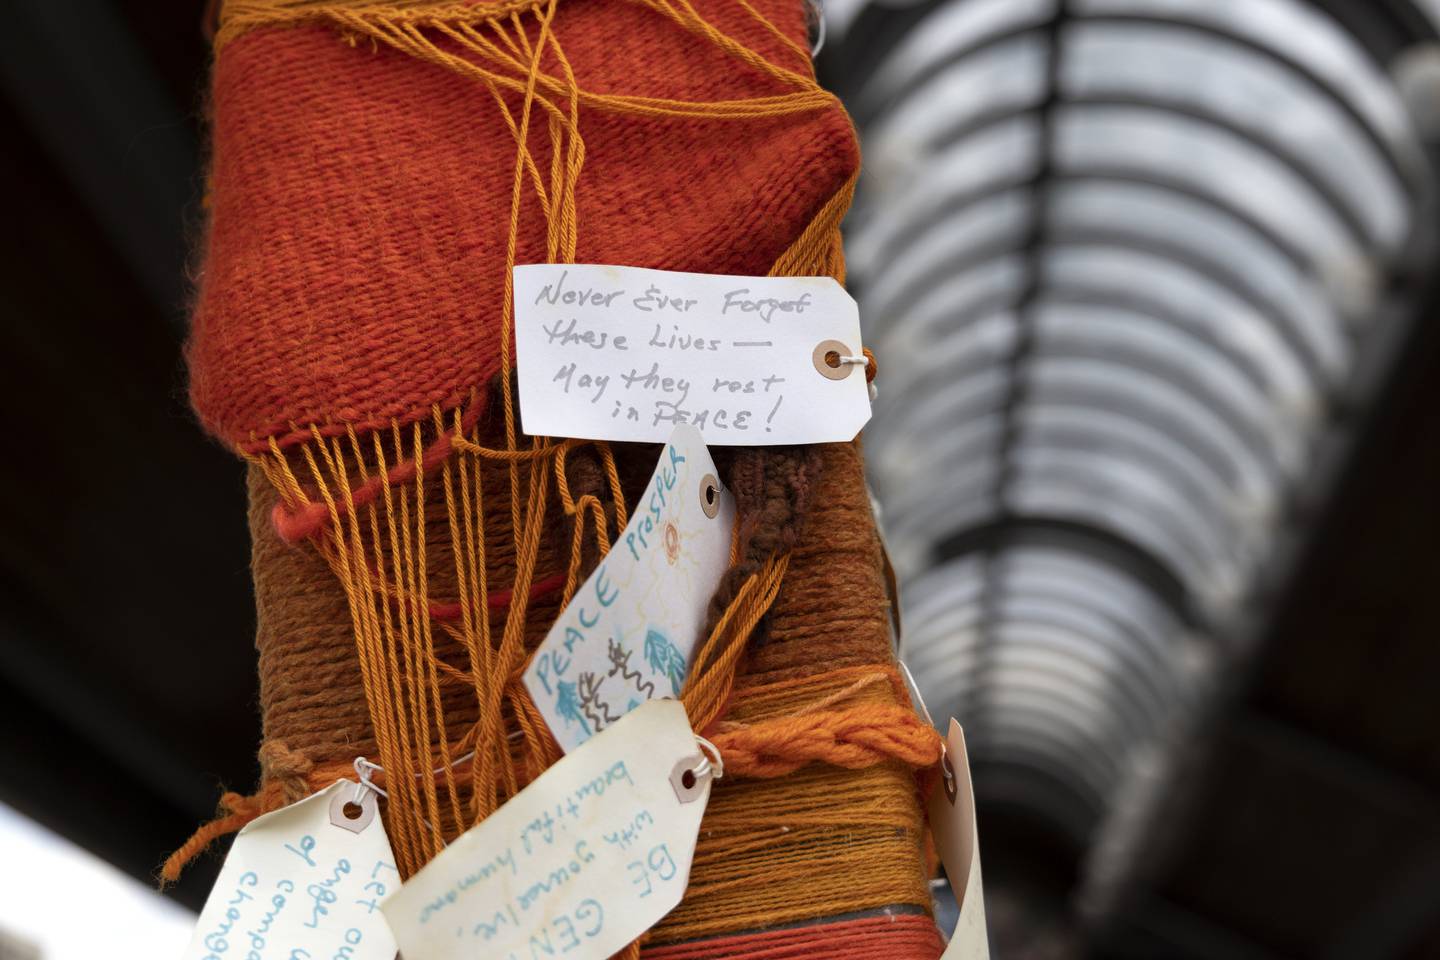 Never Ever Forget
these Lives —
May they rest
in PEACE!
PEACE PROSPER
BE GEN
with yourselve.
beautiful humans
Let ou
anger
of
compa
change